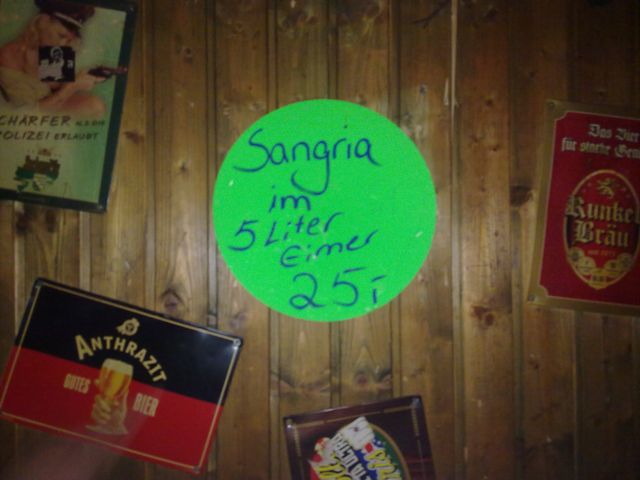 CHÄRFER ALS DIE
OLIZEI ERLAUBT
Sangria
im
5 Liter
Eimer
25,-
Das Bier
für starke
Runkel
Bräu
ANTHRAZIT
GUTES
BIER